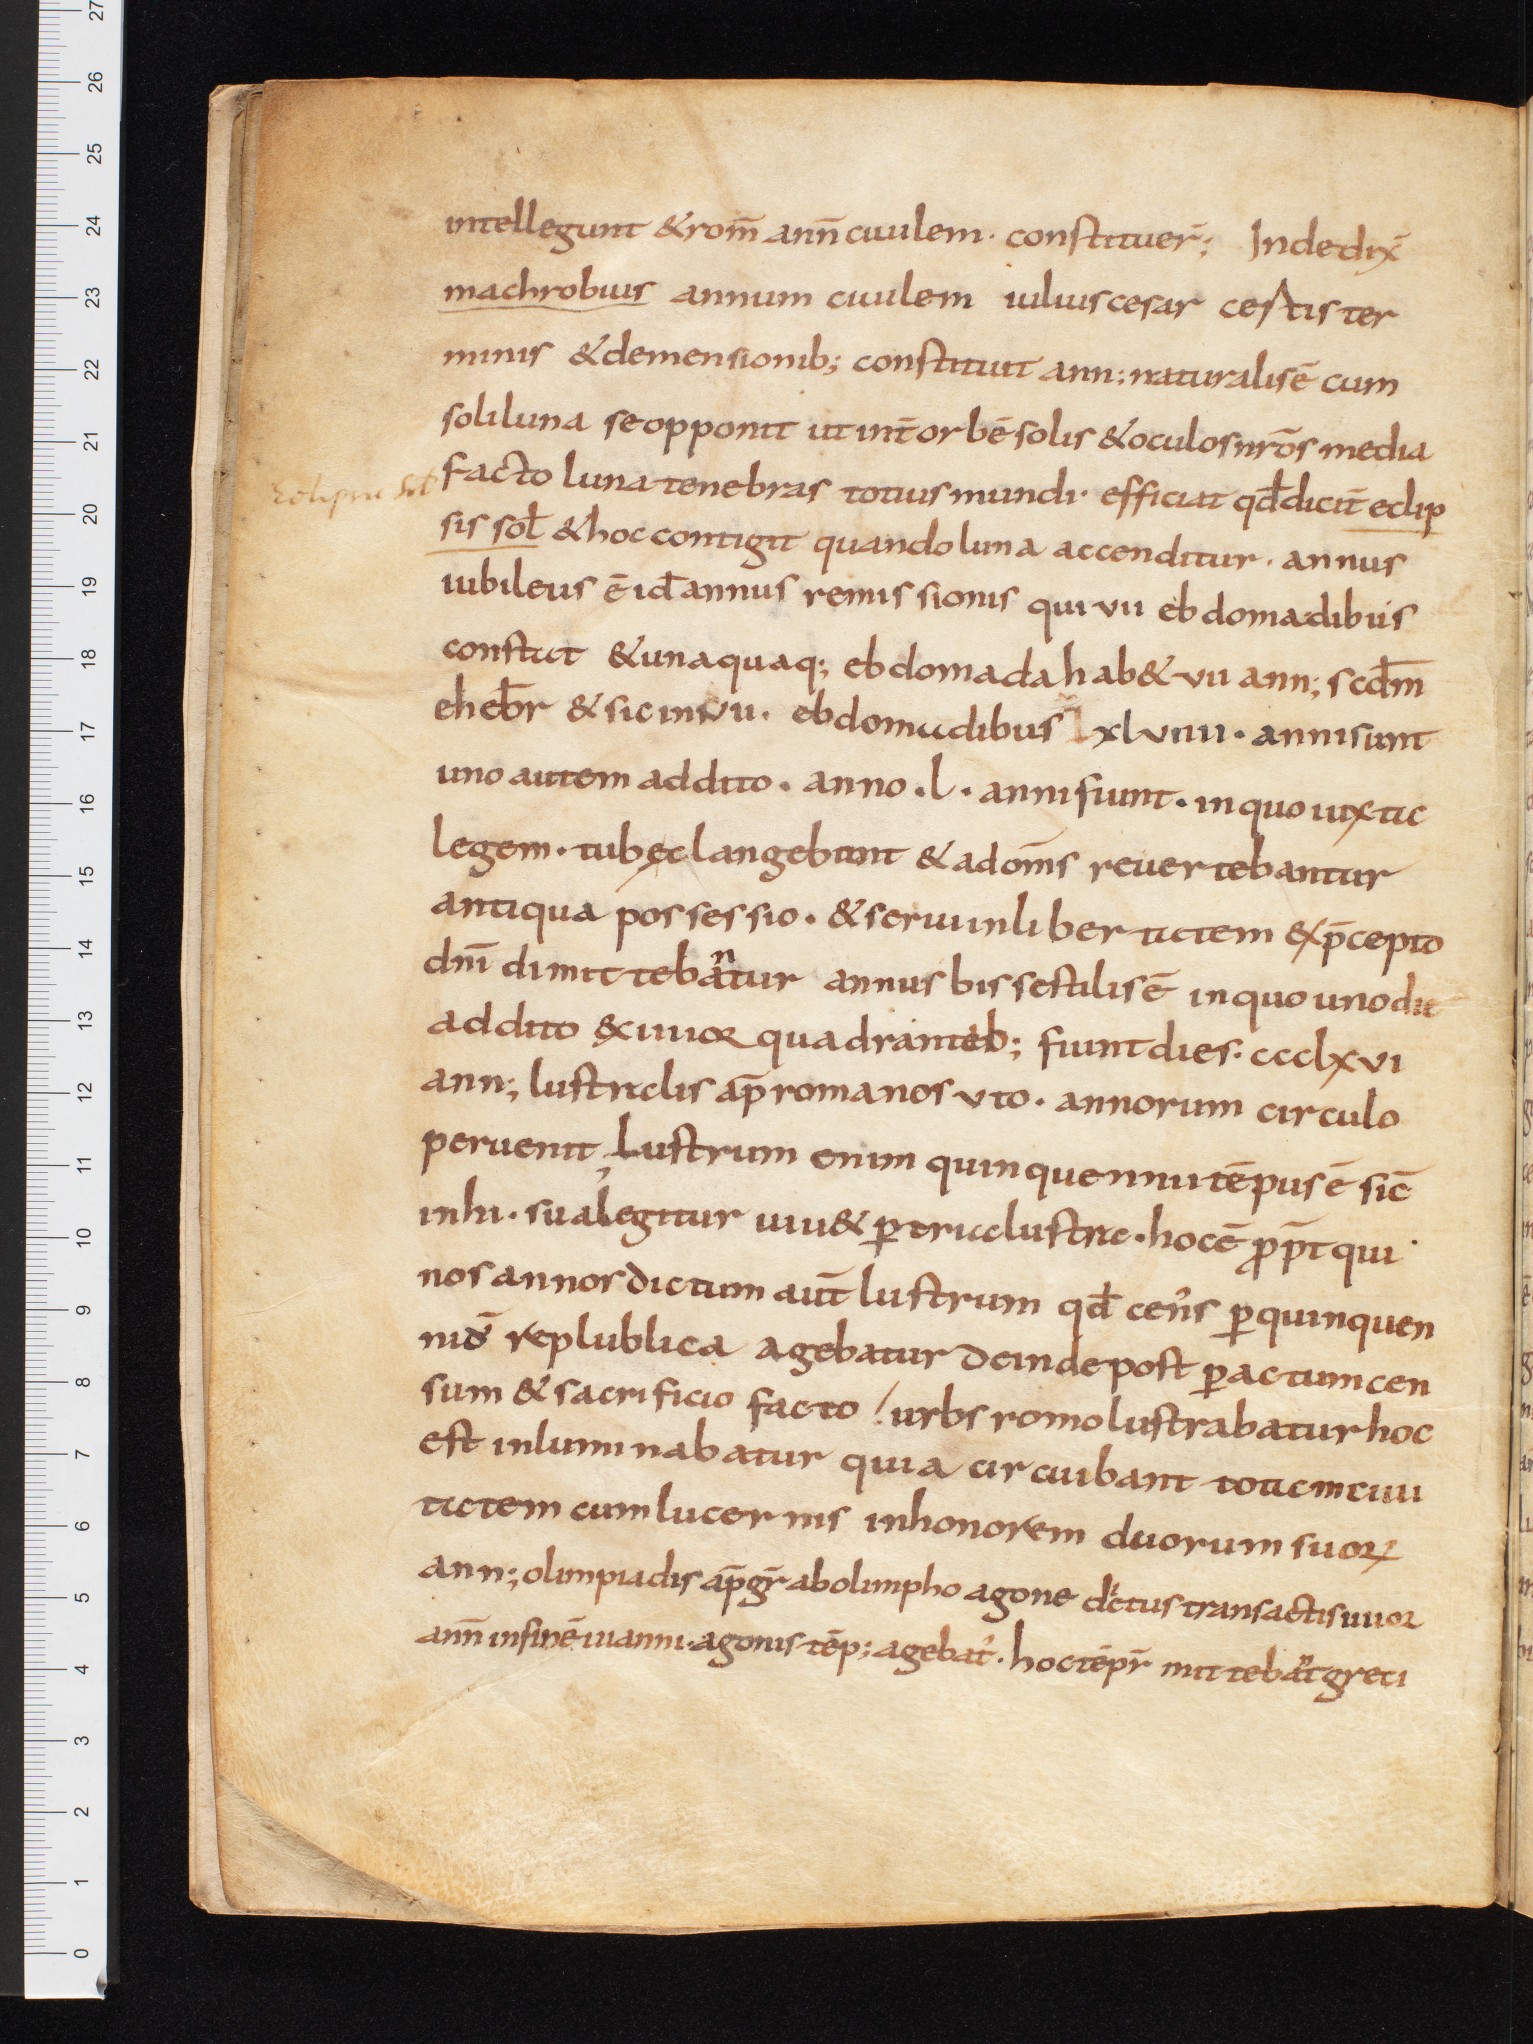 intellegunt & rom̄ ann̄ ciuilem · constituer̄; Inde dix̄
machrobius annum ciuilem iulius cesar certis ter
minis & demensionib; constituit ann; naturalis ē cum
soli luna se opponit ut int̄ orbē solis & oculos nr̄os media
Eclipsis sol facto luna tenebras totius mundi · efficiat qđ dicit̄ eclip
sis sol̄ & hoc contigit quando luna accenditur · annus
iubileus ē id̄ annus remissionis qui vii ebdomadibus
constat & unaquaq; ebdomada hab& vii ann; scdm̄
ehebr̄ & sic in vii · ebdomadibus xlviiii · anni sunt
uno autem addito · anno · l · anni fiunt · in quo iuxta
legem · tubę clangebant & ad om̄s reuertebantur
antiqua possessio · & serui in libertatem ex p̄cepto
dn̄i dimittebantur annus bissestilis ē in quo uno die
addito ex iiiior quadranteb; fiunt dies · ccclxvi
ann; lustralis ap̄ romanos v to · annorum circulo
peruenit; lustrum enim quinquennii tēpus ē sic̄
in hi · sua legitur uiu& per tria lustra · hoc ē p̄ p̄t qui
nos annos dictum aut̄ lustrum qđ cens̉ ꝑ quinquen
niō replublica agebatur deinde post ꝑactum cen
sum & sacrificio facto / urbs romo lustrabatur hoc
est inluminabatur quia circuibant totam ciui
tatem cum lucernis in honorem duorum suoꝝ
ann; olimpiadis ap̄ gr̄ ab olimpho agone dictus transactis iiiior
ann̄ in finē iu anni · agonis tēp; agebat̉ · hoc tēp r̄ mittebant greci